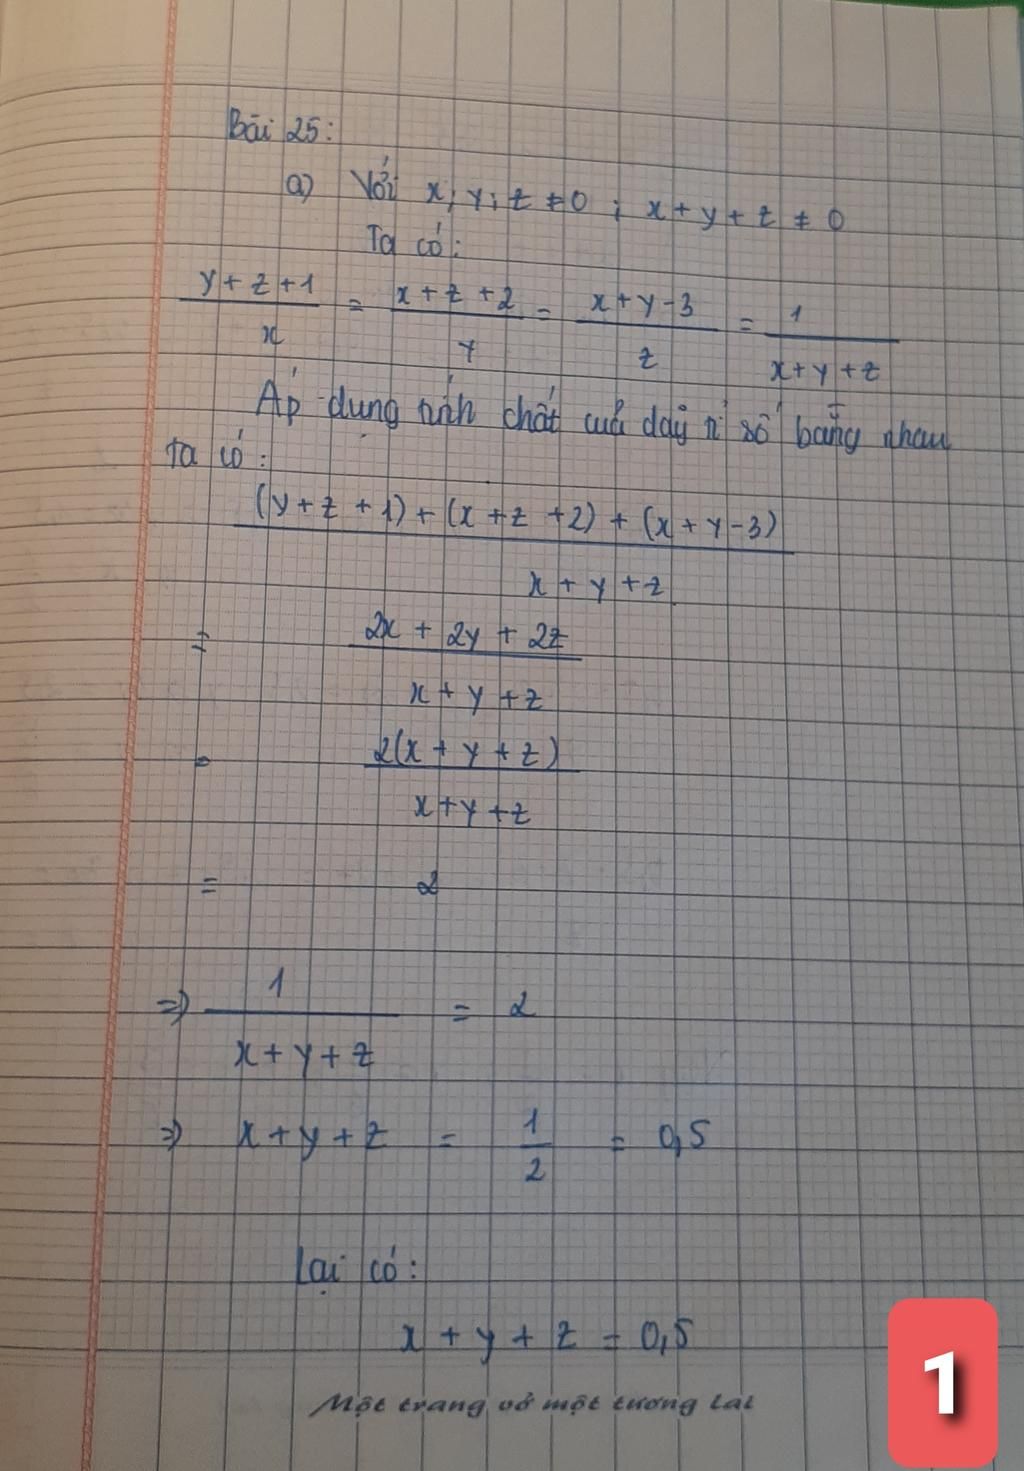 Bài 25:
a) Với x; y; z ≠ 0 ; x + y + z ≠ 0
Ta có:
y + z + 1 / x = x + z + 2 / y = x + y - 3 / z = 1 / x + y + z
Áp dụng tính chất của dãy tỉ số bằng nhau
ta có:
(y + z + 1) + (x + z + 2) + (x + y - 3)
x + y + z
= 2x + 2y + 2z
x + y + z
= 2(x + y + z)
x + y + z
= 2
⇒ 1 / x + y + z = 2
⇒ x + y + z = 1 / 2 = 0,5
Lại có:
x + y + z = 0,5
Một trang vở một tương lai
1